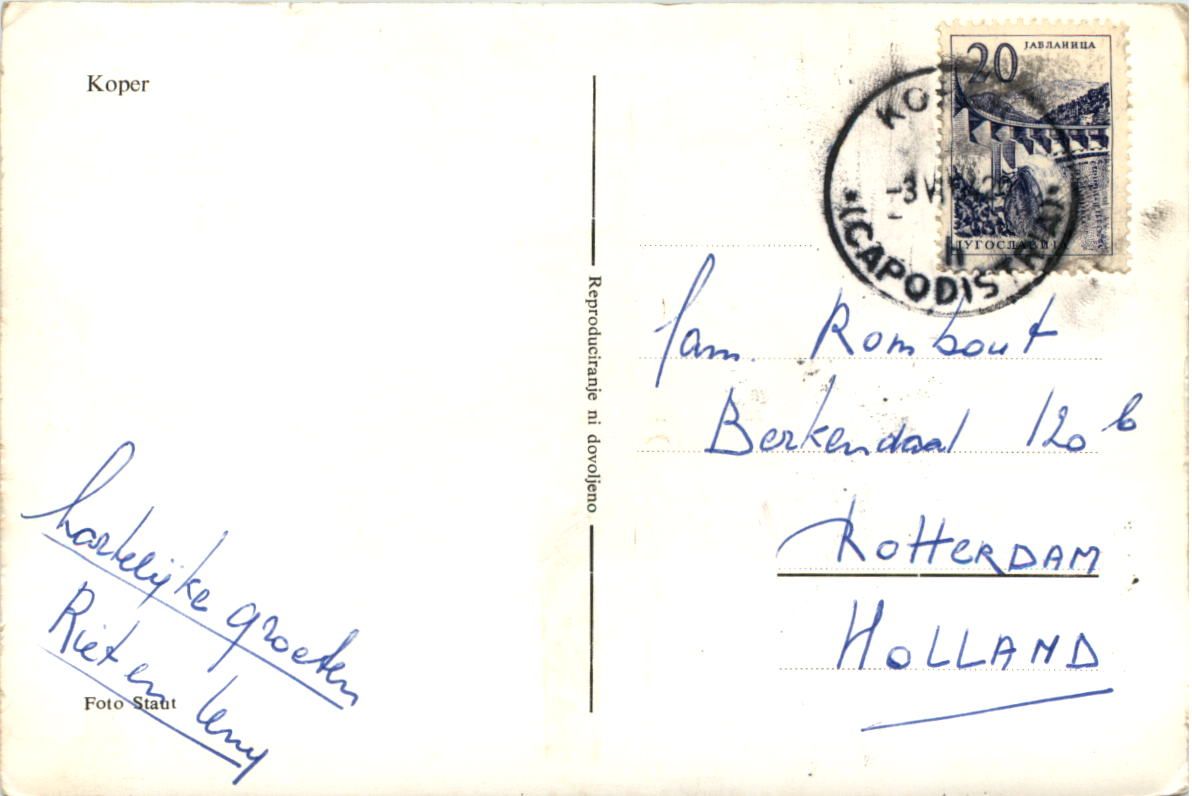 Koper
hartelijke groeten
Riet en Leny
Foto Staut
Reproduciranje ni dovoljeno
20 ЈАБЛАНИЦА
ЈУГОСЛАВИЈА
(CAPODISTRIA)
fam. Rombout
Berkendaal 120 b
ROTTERDAM
HOLLAND